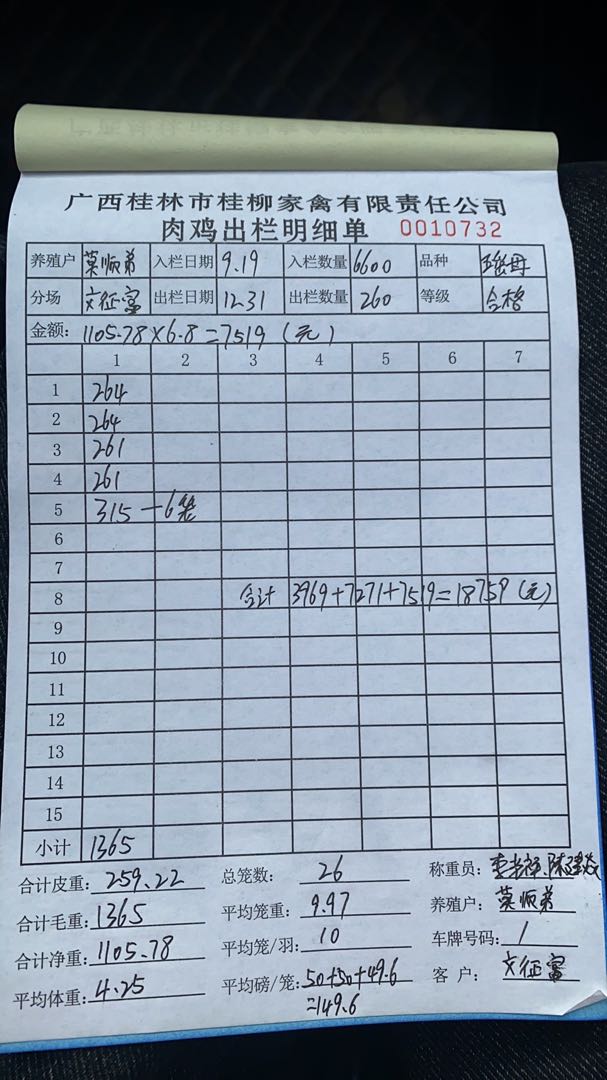 广西桂林市桂柳家禽有限责任公司
肉鸡出栏明细单 0010732
养殖户 莫师弟 入栏日期 9.19 入栏数量 6600 品种
分场 文征富 出栏日期 12.31 出栏数量 260 等级 合格
金额: 1105.78×6.8=7519 (元)
1 2 3 4 5 6 7
1 264
2 264
3 261
4 261
5 315 — 6笼
6
7
8 合计 3969+7271+7519=18759 (元)
9
10
11
12
13
14
15
小计 1365
合计皮重: 259.22 总笼数: 26 称重员:
合计毛重: 1365 平均笼重: 9.97 养殖户: 莫师弟
合计净重: 1105.78 平均笼/羽: 10 车牌号码: 1
平均体重: 4.25 平均磅/笼: 50+50+49.6 客户: 文征富
=149.6